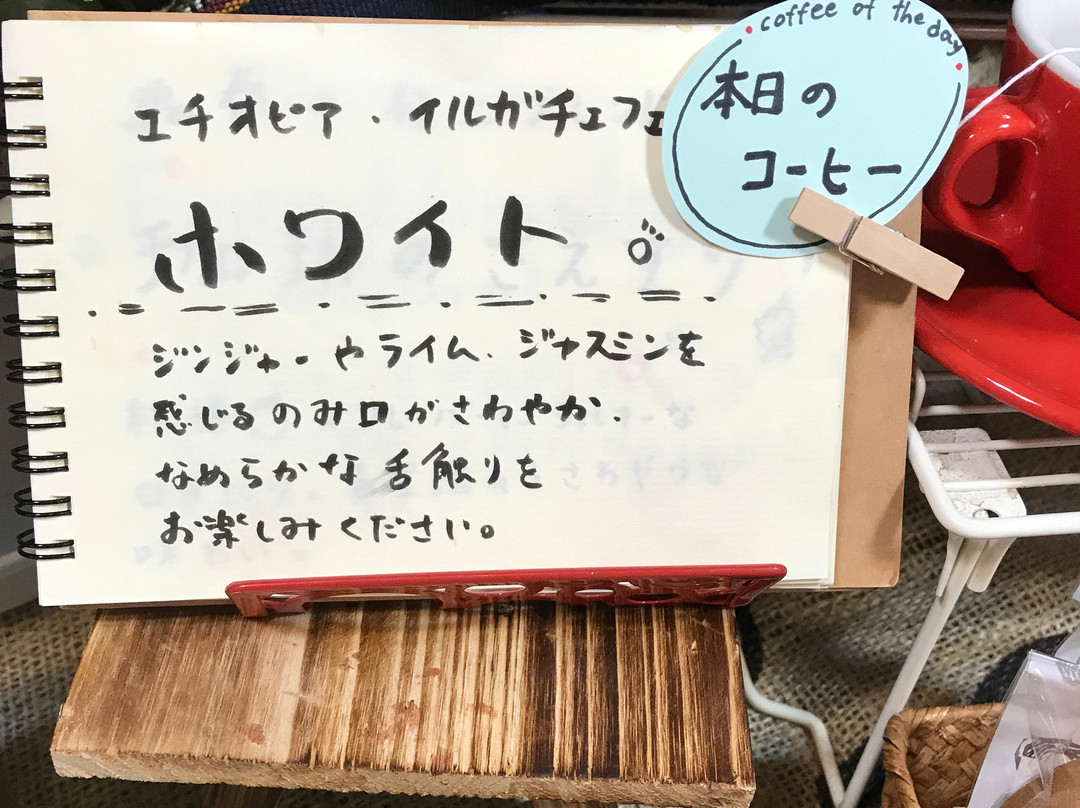 coffee of the day
本日の
コーヒー
エチオピア・イルガチェフェ
ホワイト
ジンジャーやライム、ジャスミンを
感じるのみ口がさわやか、
なめらかな舌触りを
お楽しみください。